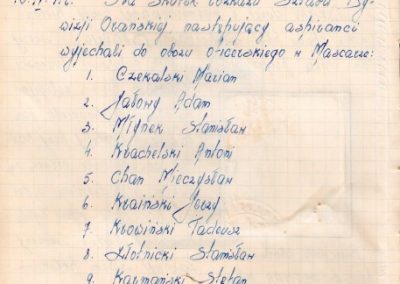 Na skutek rozkazu Sztabu Dy-
wizji Orańskiej, następujący aspiranci
wyjechali do obozu oficerskiego w Mascarze:
1. Czekalski Marian
2. Jałowy Adam
3. Młynek Stanisław
4. Krachelski Antoni
5. Chan Mieczysław
6. Kraiński Jerzy
7. Krowiński Tadeusz
8. Złotnicki Stanisław
9. Stefan